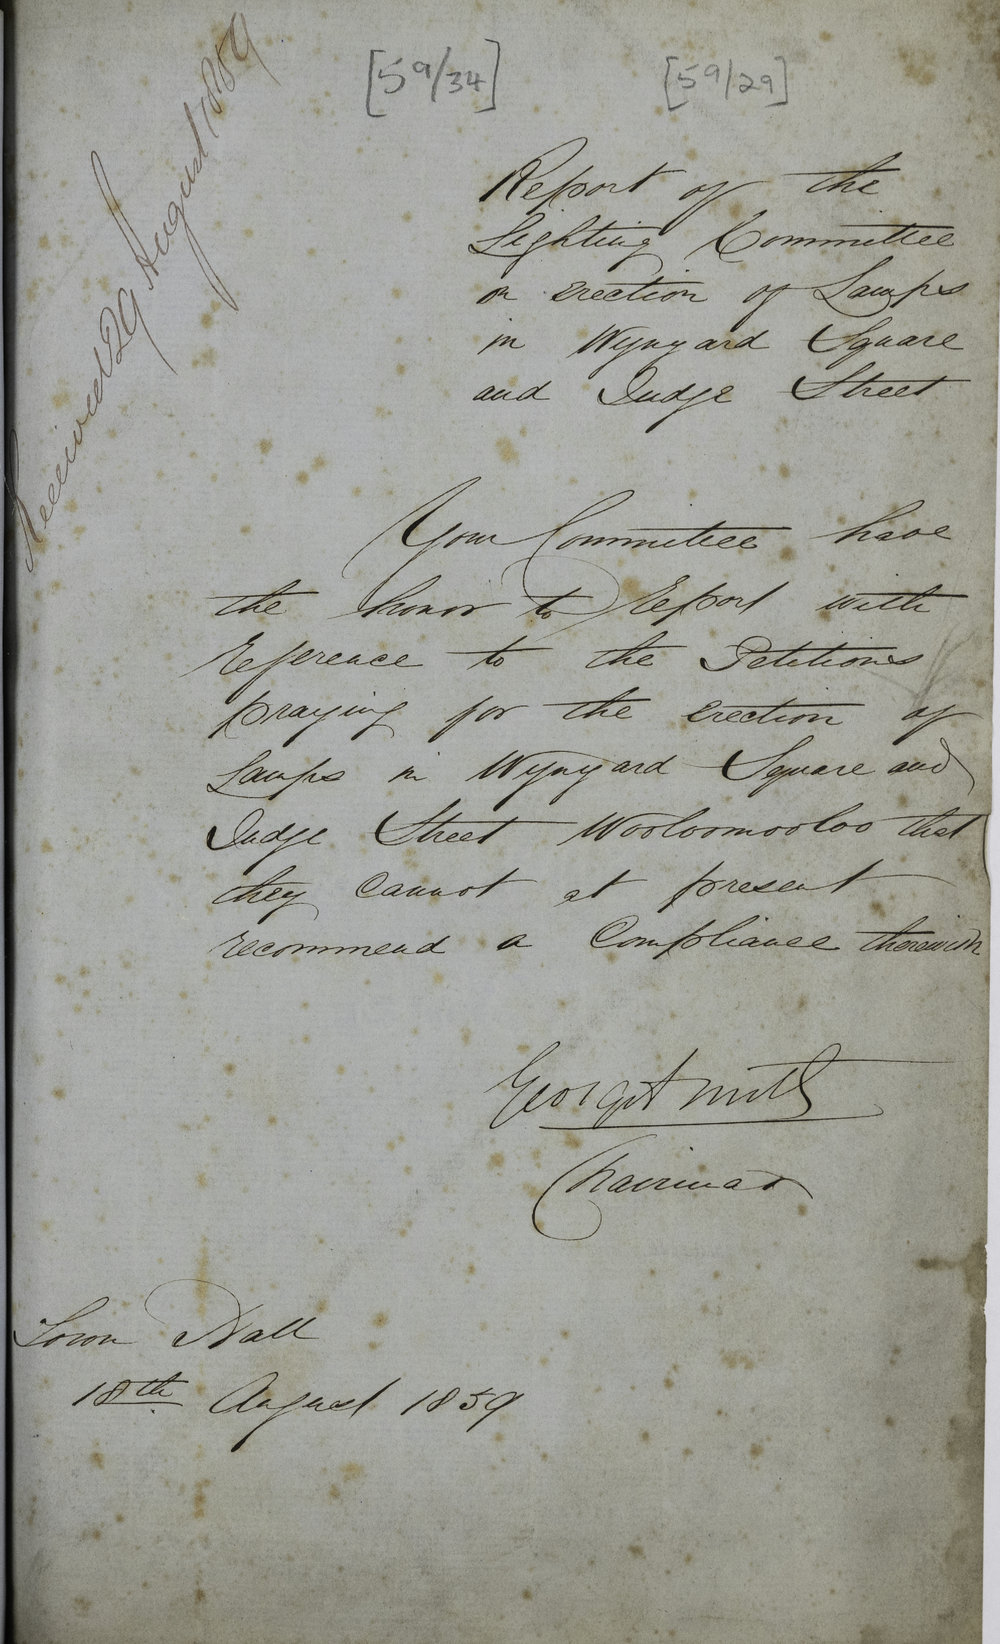 [59/34] [59/29]
Received 29 August 1859
Report of the
Lighting Committee
on erection of Lamps
in Wynyard Square
and Judge Street
Your Committee have
the honor to report with
reference to the Petitions
praying for the erection of
Lamps in Wynyard Square and
Judge Street Wooloomooloo that
they cannot at present
recommend a Compliance therewith
George Smith
Chairman
Town Hall
18th August 1859